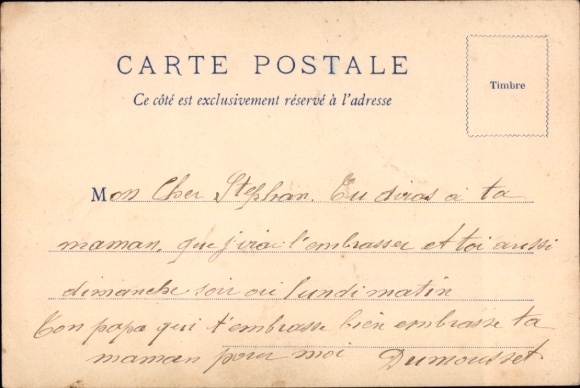 CARTE POSTALE
Ce côté est exclusivement réservé à l'adresse
Timbre
Mon Cher Stephan. Tu diras a ta
maman, que j'irai l'embrasser et toi aussi
dimanche soir ou lundi matin
Ton papa qui t'embrasse bien embrasse ta
maman pour moi Dumousset